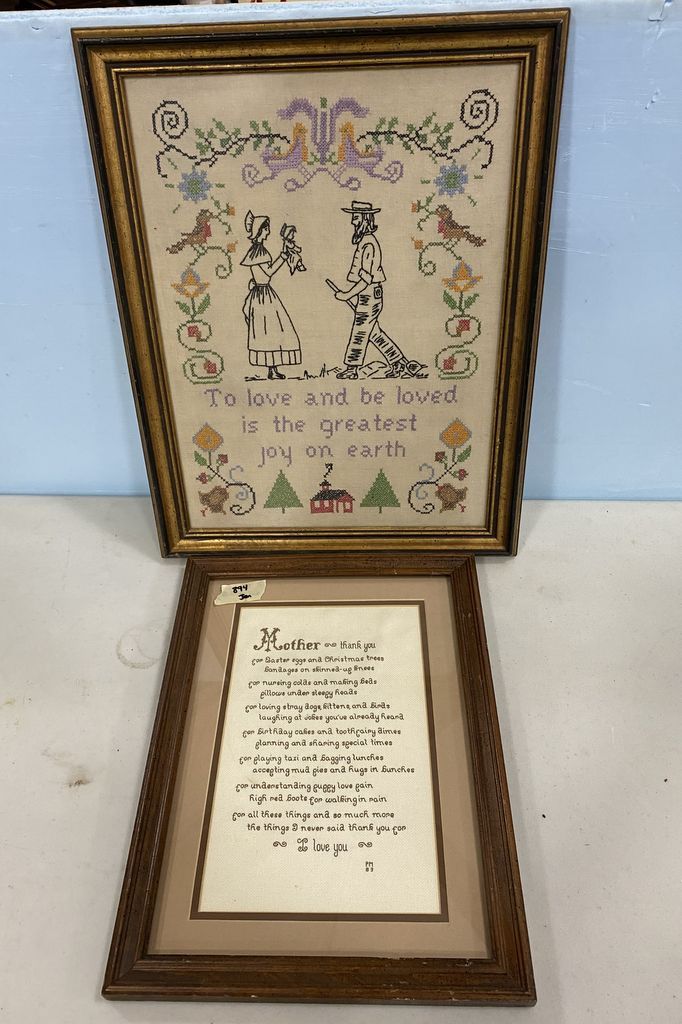 To love and be loved
is the greatest
joy on earth
894
Jen
Mother thank you
for Easter eggs and Christmas trees
bandages on skinned-up knees
for nursing colds and making beds
pillows under sleepy heads
for loving stray dogs, kittens, and birds
laughing at jokes you've already heard
for birthday cakes and toothfairy dimes
planning and sharing special times
for playing taxi and bagging lunches
accepting mud pies and hugs in bunches
for understanding puppy love pain
high red boots for walking in rain
for all these things and so much more
the things I never said thank you for
I love you
PM
89